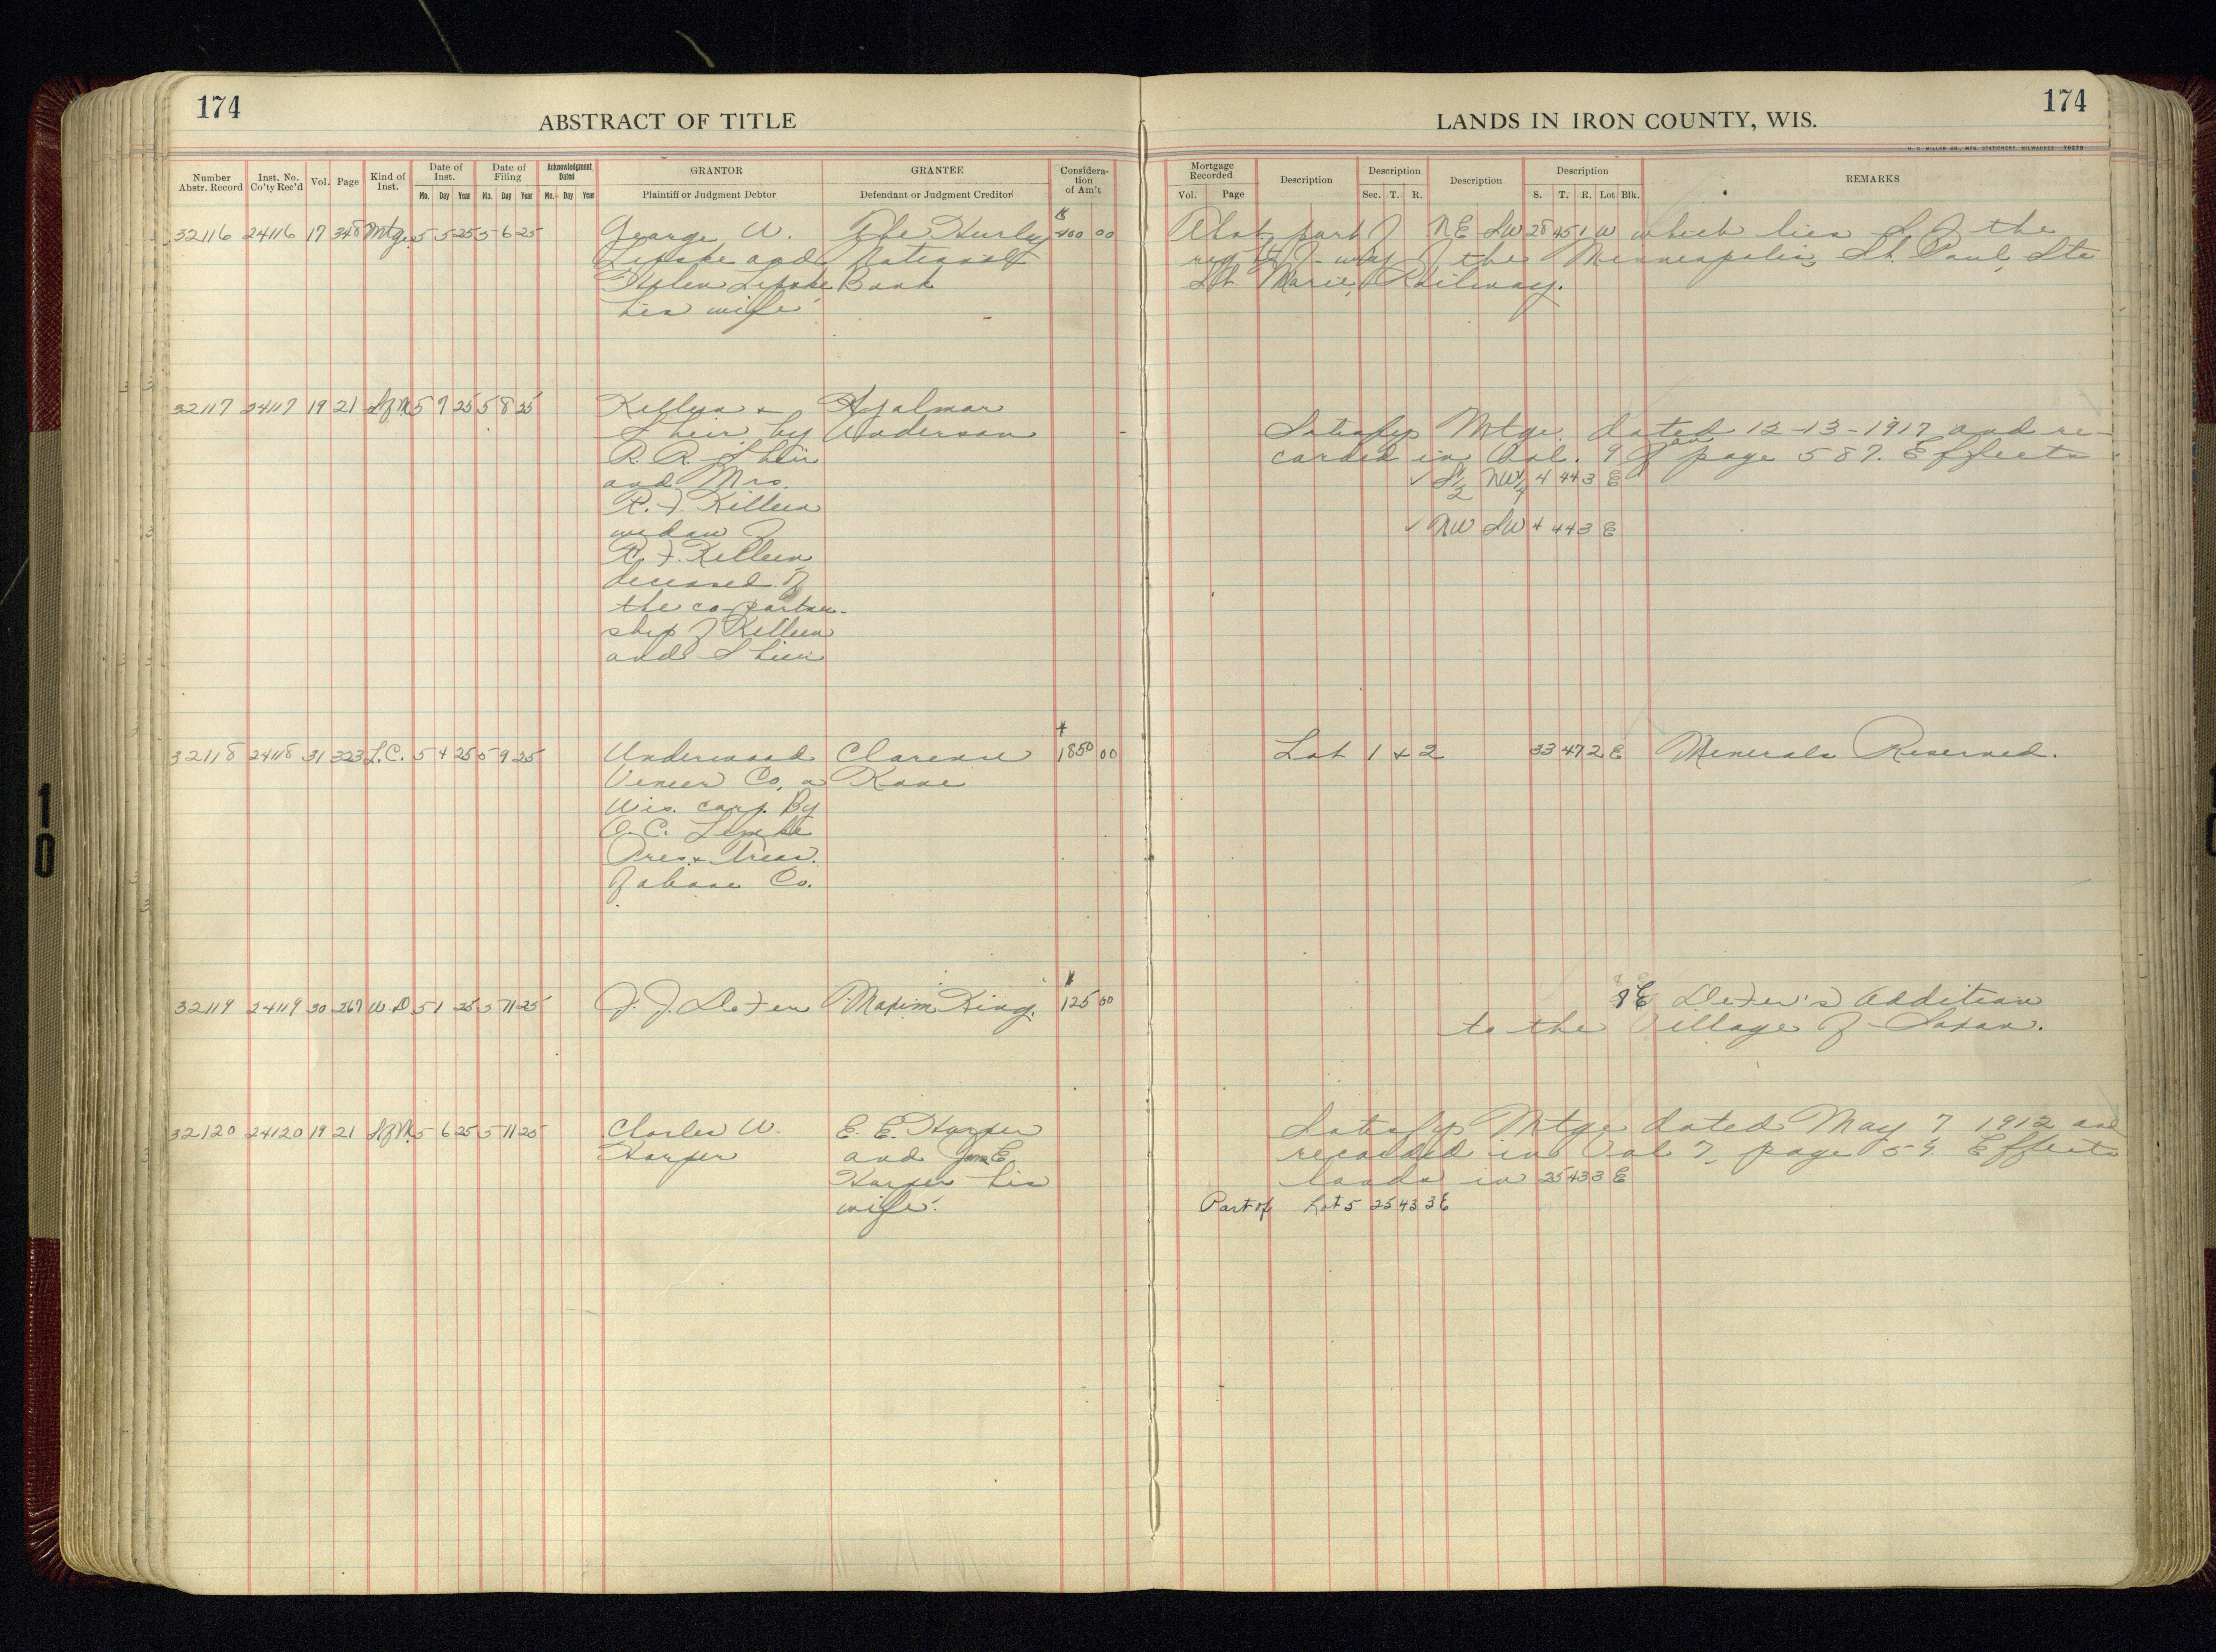 174
ABSTRACT OF TITLE
Number Abstr. Record | Inst. No. Co'ty Rec'd | Vol. | Page | Kind of Inst. | Date of Inst. Mo. Day Year | Date of Filing Mo. Day Year | Acknowledgment Dated Mo. Day Year | GRANTOR Plaintiff or Judgment Debtor | GRANTEE Defendant or Judgment Creditor | Considera-tion of Am't
32116 24116 17 348 Mtge. 5 5 25 5 6 25 George W. The Hurley $400 00
and National
Helen Bank
his wife
32117 24117 19 21 S of M 5 7 25 5 8 25 Killeen + Hjalmar
by Anderson
R. R.
and Mrs.
R. F. Killeen
widow of
R. F. Killeen,
deceased of
the co-partner-
ship of Killeen
and
32118 24118 31 323 L.C. 5 4 25 5 9 25 Underwood Clarence $1850 00
Veneer Co, a
Wis. corp. By
C. Lemke
Pres. + Treas.
of above Co.
32119 24119 30 267 W.D. 5 1 25 5 11 25 J. J. DeFer Maxim King. $125 00
32120 24120 19 21 S of M. 5 6 25 5 11 25 Charles W. E. E. Harper
Harper and E.
Harper his
wife.
LANDS IN IRON COUNTY, WIS.
174
H. C. MILLER CO., MFG. STATIONERS, MILWAUKEE
Mortgage Recorded Vol. Page | Description | Description Sec. T. R. | Description | Description S. T. R. Lot Blk. | REMARKS
That part of NE SW 28 45 1 W which lies S of the
right of way of the Minneapolis, St. Paul, Ste
St. Marie, Railway.
Satisfys Mtge. dated 12-13-1917 and re-
corded in Vol. 9 page 587. Effects
✓ S1/2 NW1/4 4 44 3 E
✓ NW SW 4 44 3 E
Lot 1 + 2 33 47 2 E Minerals Reserved.
8 E DeFer's Addition
to the Village of Saxon.
Satisfys Mtge dated May 7 1912 and
recorded in Vol 7, page Effects
lands in 25 43 3 E
Part of Lot 5 25 43 3 E